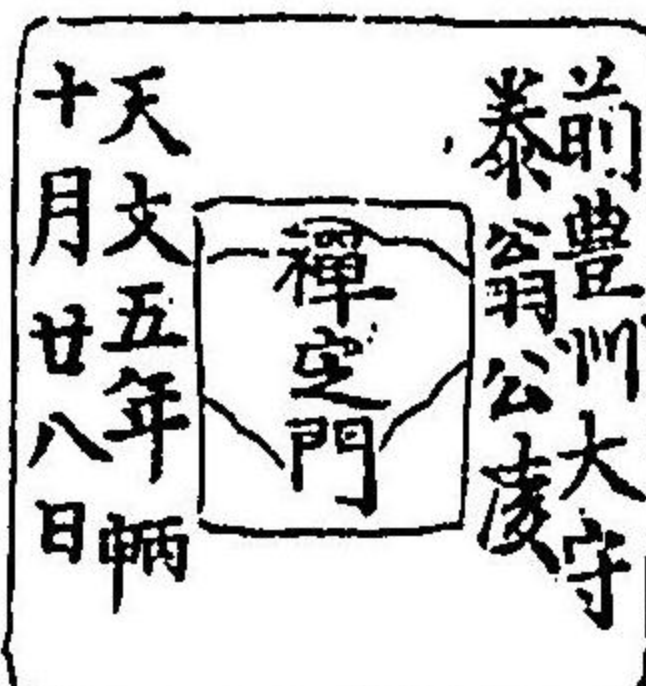 前豊州大守
泰翁公慶
禪㝎門
天文五年丙申
十月廿八日